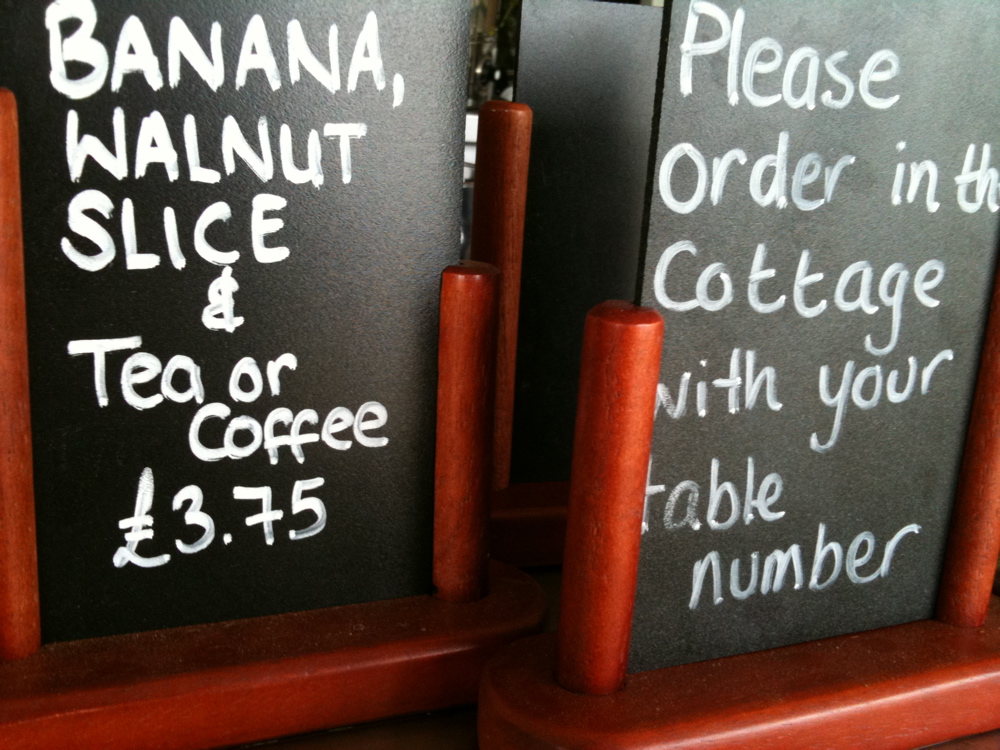 BANANA,
WALNUT
SLICE
&
Tea or
Coffee
£3.75
Please
order in th
Cottage
with your
table
number